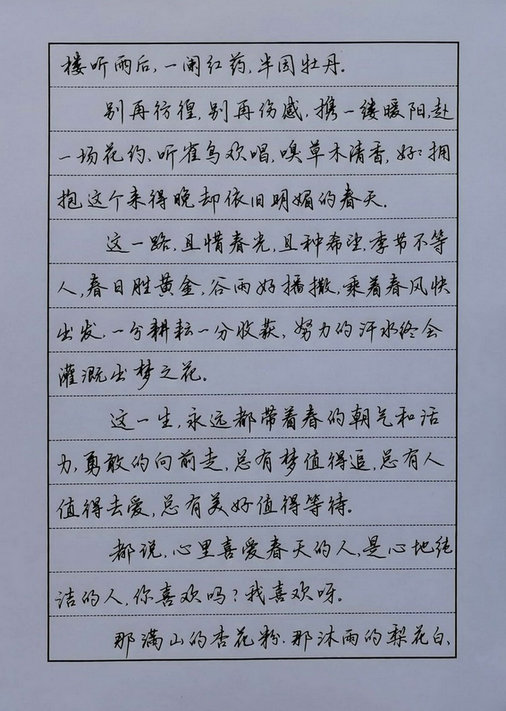 楼听雨后,一阑红药,半园牡丹。
别再彷徨,别再伤感,携一缕暖阳,赴
一场花约,听雀鸟欢唱,嗅草木清香,好好拥
抱这个来得晚却依旧明媚的春天。
这一路,且惜春光,且种希望,季节不等
人,春日胜黄金,谷雨好播撒,乘着春风快
出发,一分耕耘一分收获,努力的汗水终会
灌溉出梦之花。
这一生,永远都带着春的朝气和活
力,勇敢的向前走,总有梦值得追,总有人
值得去爱,总有美好值得等待。
都说,心里喜爱春天的人,是心地纯
洁的人,你喜欢吗?我喜欢呀。
那满山的杏花粉,那沐雨的梨花白,